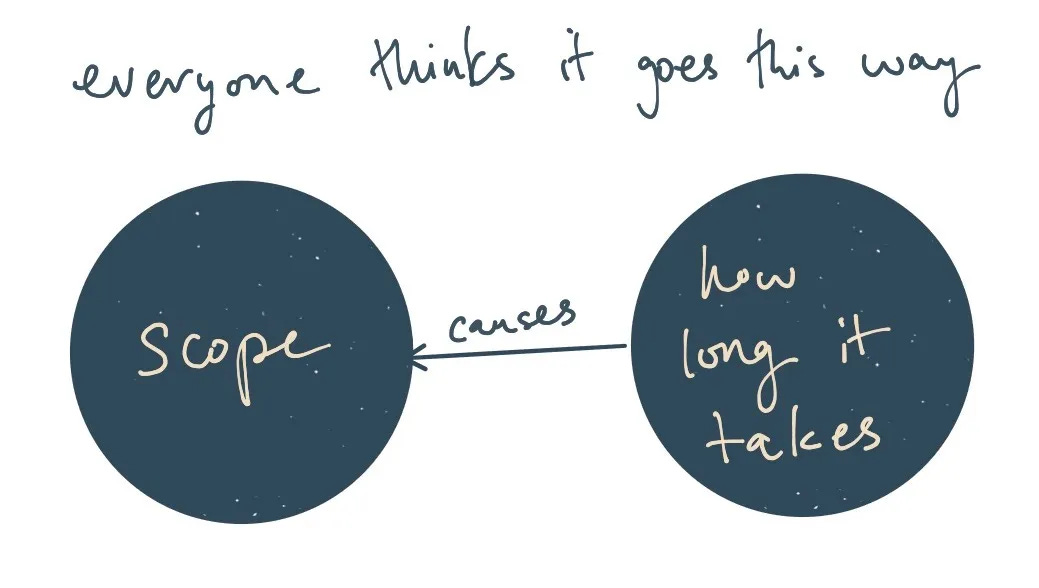 everyone thinks it goes this way
scope
causes
how
long it
takes